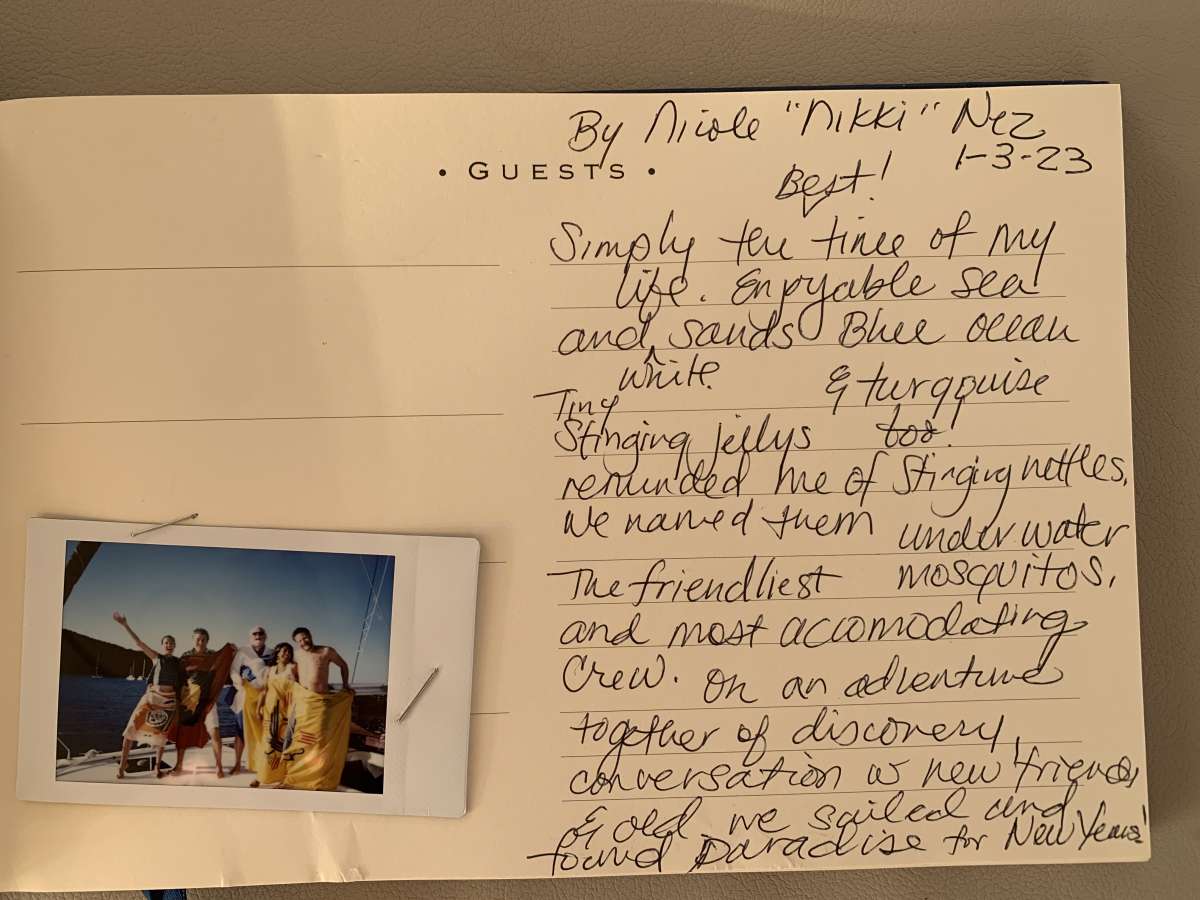 By Nicole "Nikki" Nez
1-3-23
• GUESTS •
Best!
Simply the time of my
life. Enjoyable sea
and sands Blue ocean
^ white
& turqouise
Tiny
Stinging jellys too!
reminded me of Stinging nettles.
We named them under water
mosquitos.
The friendliest
and most accomodating
Crew. On an adventure
together of discovery,
conversation w new friends
& old. we sailed and
found paradise for New Years!